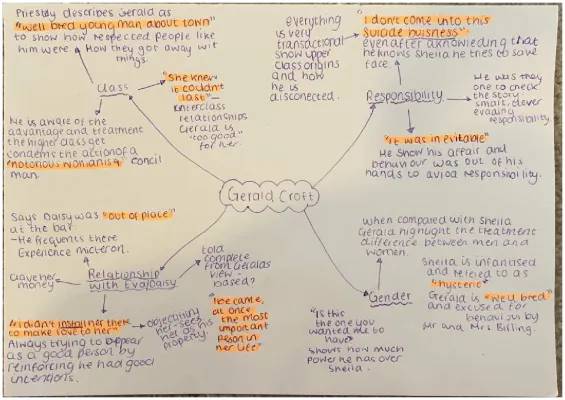 Priestly describes Gerald as
"well bred young man about town"
to show how respected people like
him were → How they got away wit
things.
Class
"She knew
it couldn't
last" –
interclass
relationships
Gerald is
"too good"
for her.
He is aware of the
advantage and treatment
the higher class get
condems the action of a
"notorious womaniser" concil
man.
everything
is very
transactional
show upper
class origins
and how
he is
disconected.
"I don't come into this
suicide buisness"
even after aknowleding that
he knows Sheila he tries to save
face.
Responsibility
He was they
one to check
the story
smart, clever
evading
responsibility.
"it was inevitable"
He show his affair and
behaviour was out of his
hands to aviod responsibility.
Gerald Croft
Says Daisy was "out of place"
at the bar
– He frequents there
Experience
Gave her
money
Relationship
with Eva/Daisy
told
complete
from Geralds
view –
biased?
"I didn't install her there
to make love to her"
Always trying to appear
as a good person by
reinforcing he had good
intentions.
objectifying
her – sees
her as his
property.
"I became,
at once
the most
important
person in
her life"
When compared with Sheila
Gerald highlight the treatment
difference between men and
women.
Gender
Sheila is infantised
and refered to as
"hysteric"
Gerald is "well bred"
and excused for
behaviour by
Mr and Mrs Birling.
"Is this
the one you
wanted me to
have"
shows how much
power he has over
Sheila.